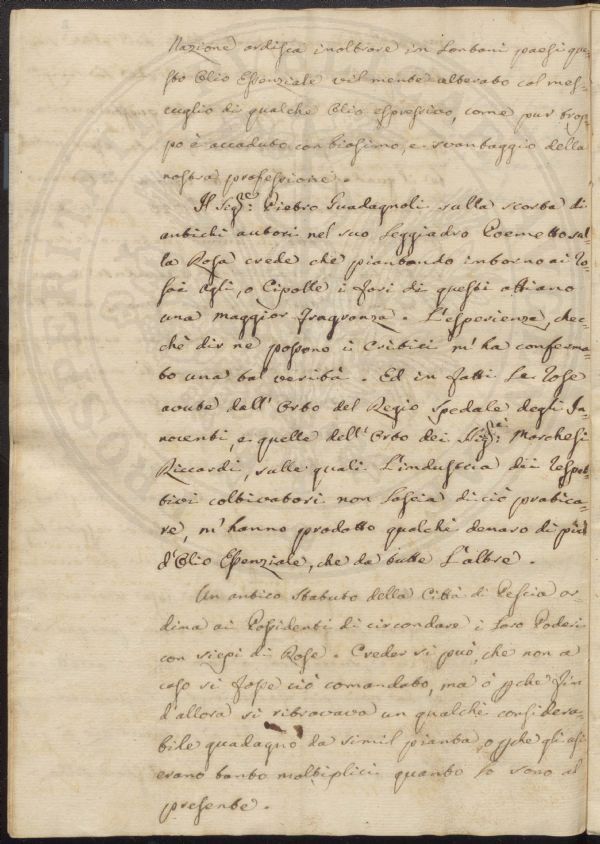 Nazione ardisca inoltrare in lontani paesi que-
sto Olio Essenziale vilmente alterato col mes-
cuglio di qualche Olio espressivo, come pur trop-
po è accaduto con biasimo, e svantaggio della
nostra professione.
Il Sigre: Pietro Guadagnoli sulla scorta di
antichi autori nel suo Leggiadro Poemetto sul-
la Rosa crede che piantando intorno ai Ro-
sai Agli, o Cipolle i fiori di questi abbiano
una maggior fragranza. L'esperienza, chec-
chè dir ne possono i Critici m'ha conferma-
to una tal verità. Ed in fatti Le Rose
avute dall'Orto del Regio Spedale degli In-
nocenti, e quelle dell'Orto dei Sigri: Marchesi
Riccardi, sulle quali L'industria dei respet-
tivi coltivatori non lascia di ciò pratica-
re, m'hanno prodotto qualche denaro di più
d'Olio Essenziale, che da tutte L'altre.
Un antico Statuto della Città di Pescia or-
dina ai Possidenti di circondare i loro Poderi
con siepi di Rose. Creder si può, che non a
caso si fosse ciò comandato, ma o pche fin
d'allora si ritrovava un qualche considera-
bile guadagno da simil pianta, o pche gli usi
erano tanto moltiplici quanto lo sono al
presente.